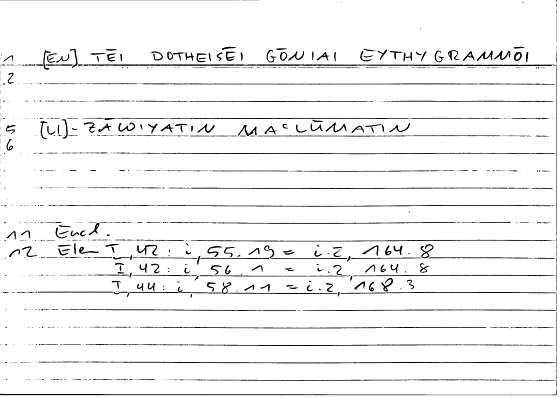 1 [EN] TĒI DOTHEISĒI GŌNIAI EYTHYGRAMMŌI
2
5 [LI]-ZĀWIYATIN MAʿLŪMATIN
6
11 Eucl.
12 Elem I, 42 : i, 55.19 = i.2, 164.8
I, 42 : i, 56.1 = i.2, 164.8
I, 44 : i, 58.11 = i.2, 168.3